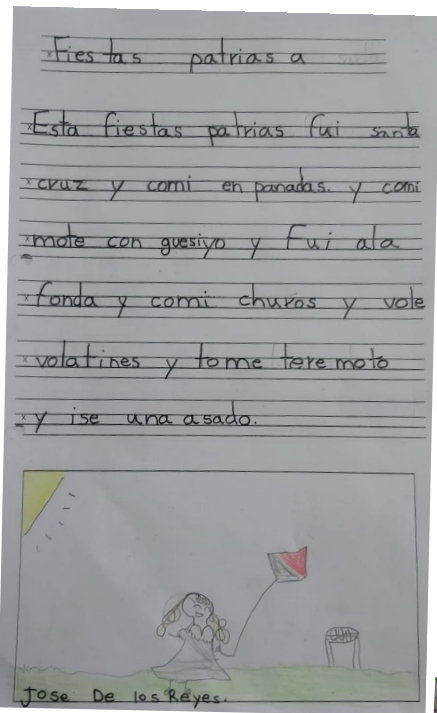 Fiestas patrias a
Esta fiestas patrias fui santa
cruz y comi en panadas. y comi
mote con guesiyo y fui ala
fonda y comi churos y vole
volatines y tome tere moto
y ise una asado.
Jose De los Reyes.